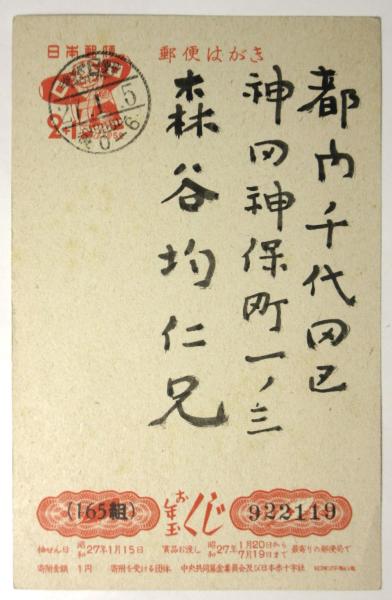 日本郵便
郵便はがき
27.1.5
都内千代田区
神田神保町一ノ三
森谷均仁兄
(165組)
お年玉くじ
922119
抽せん日 昭和27年1月15日 賞品お渡し 昭和27年1月20日から7月19日まで 最寄りの郵便局で
寄附金額 1円 寄附を受ける団体 中央共同募金委員会及び日本赤十字社